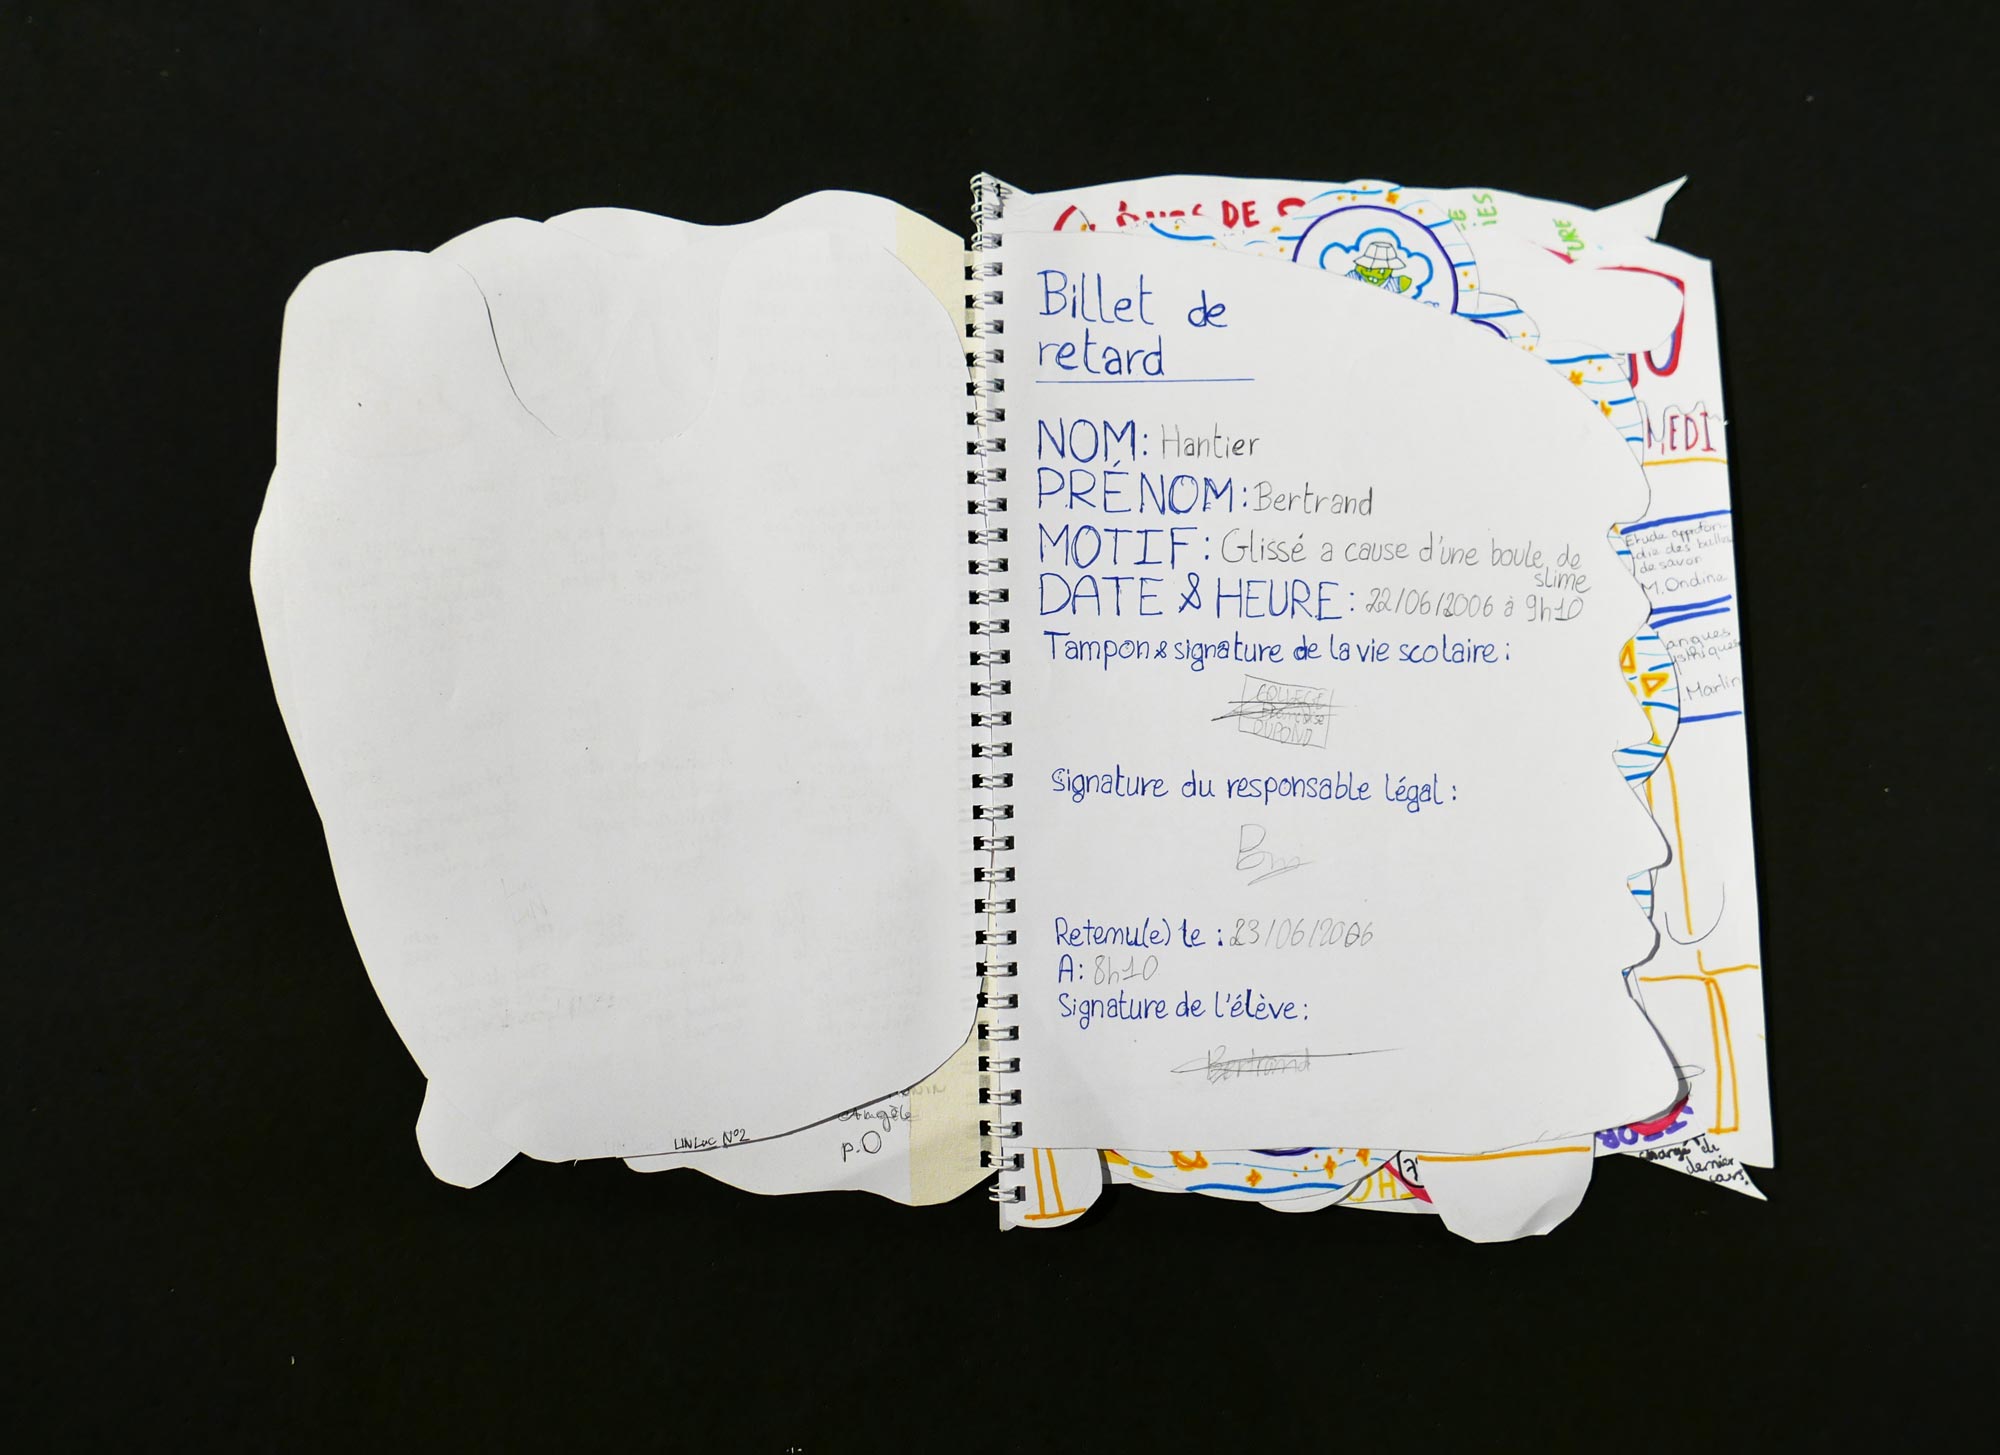 LIN Luc N°2
Angèle
p.O
DE
Billet de
retard
NOM: Hantier
PRÉNOM: Bertrand
MOTIF: Glissé a cause d'une boule de
slime
DATE & HEURE: 22/06/2006 à 9h10
Tampon & signature de la vie scolaire:
COLLEGE
DUPOND
Signature du responsable légal:
Retenu(e) le: 23/06/2006
A: 8h10
Signature de l'élève:
Bertrand
MEDI
Etude approfon-
die des bulles
de savon
M.Ondine
Marlin
dernier
cours!